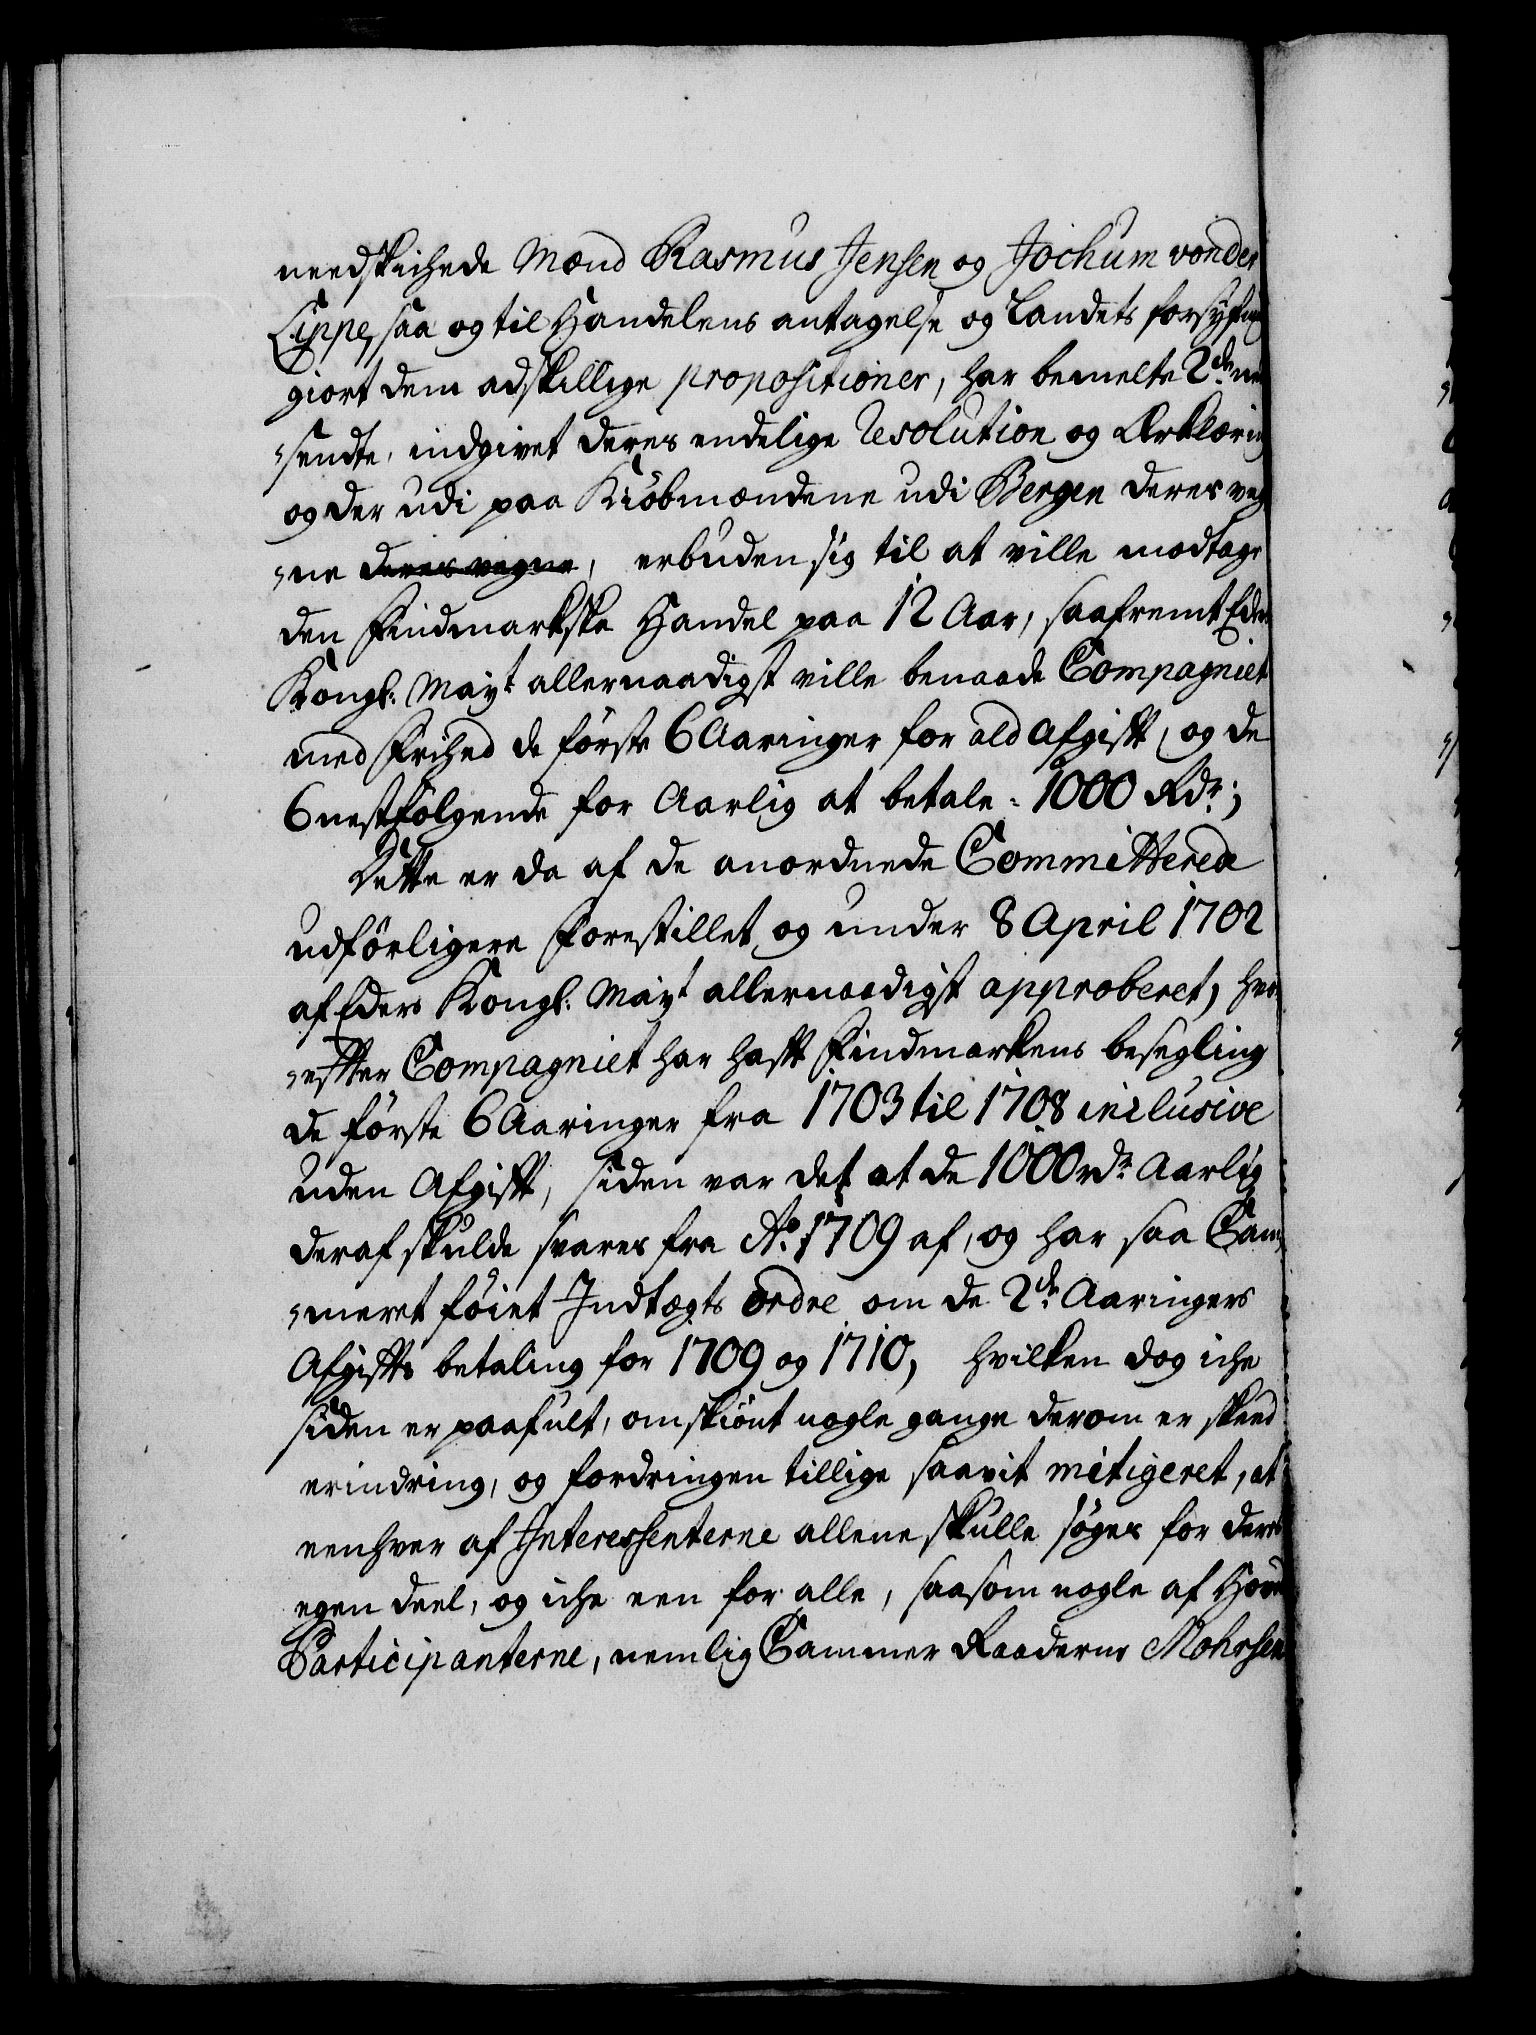 needskichede Mænd Rasmus Jensen og Jochum vonder
Lippe, saa og til Handelens antagelse og Landets forsyfning
giort dem adskillige propositioner, har bemelte 2de ned
=sendte, indgivet deres endelige Resolution og Erklæring
og der udi paa Kiöbmændene udi Bergen deres veg
=ne deres vegne, erbuden sig til at ville modtage
den Findmarkske Handel paa 12 Aar, saafremt Eders
Kongl: Mayt allernaadigst ville benaade Compagniet
med Frihed de förste 6 Aaringer for ald Afgift, og de
6 nestfölgende for Aarlig at betale = 1000 Rdr;
Dette er da af de anordnede Committerede
udförligere Forestillet, og under 8 April 1702
af Eders Kongl: Mayt allernaadigst approberet, hvor
=effter Compagniet har hafft Findmarkens besegling
de förste 6 Aaringer fra 1703 til 1708 inclusive
uden Afgifft, siden var det at de 1000 rdr Aarlig
deraf skulde svares fra Ao. 1709 af, og har saa Cam=
=meret föiet Indtægts ordre om de 2de Aaringers
Afgiffts betaling for 1709 og 1710, hvilken dog iche
siden er paafult, omskiönt nogle gange derom er skeed
erindring, og fordringen tillige saavit mitigeret, at
eenhver af Interessenterne allene skulle söges for deres
egen deel, og iche een for alle, saasom nogle af Hoved
Participanterne, nemlig Cammer Raaderne Mohrsen